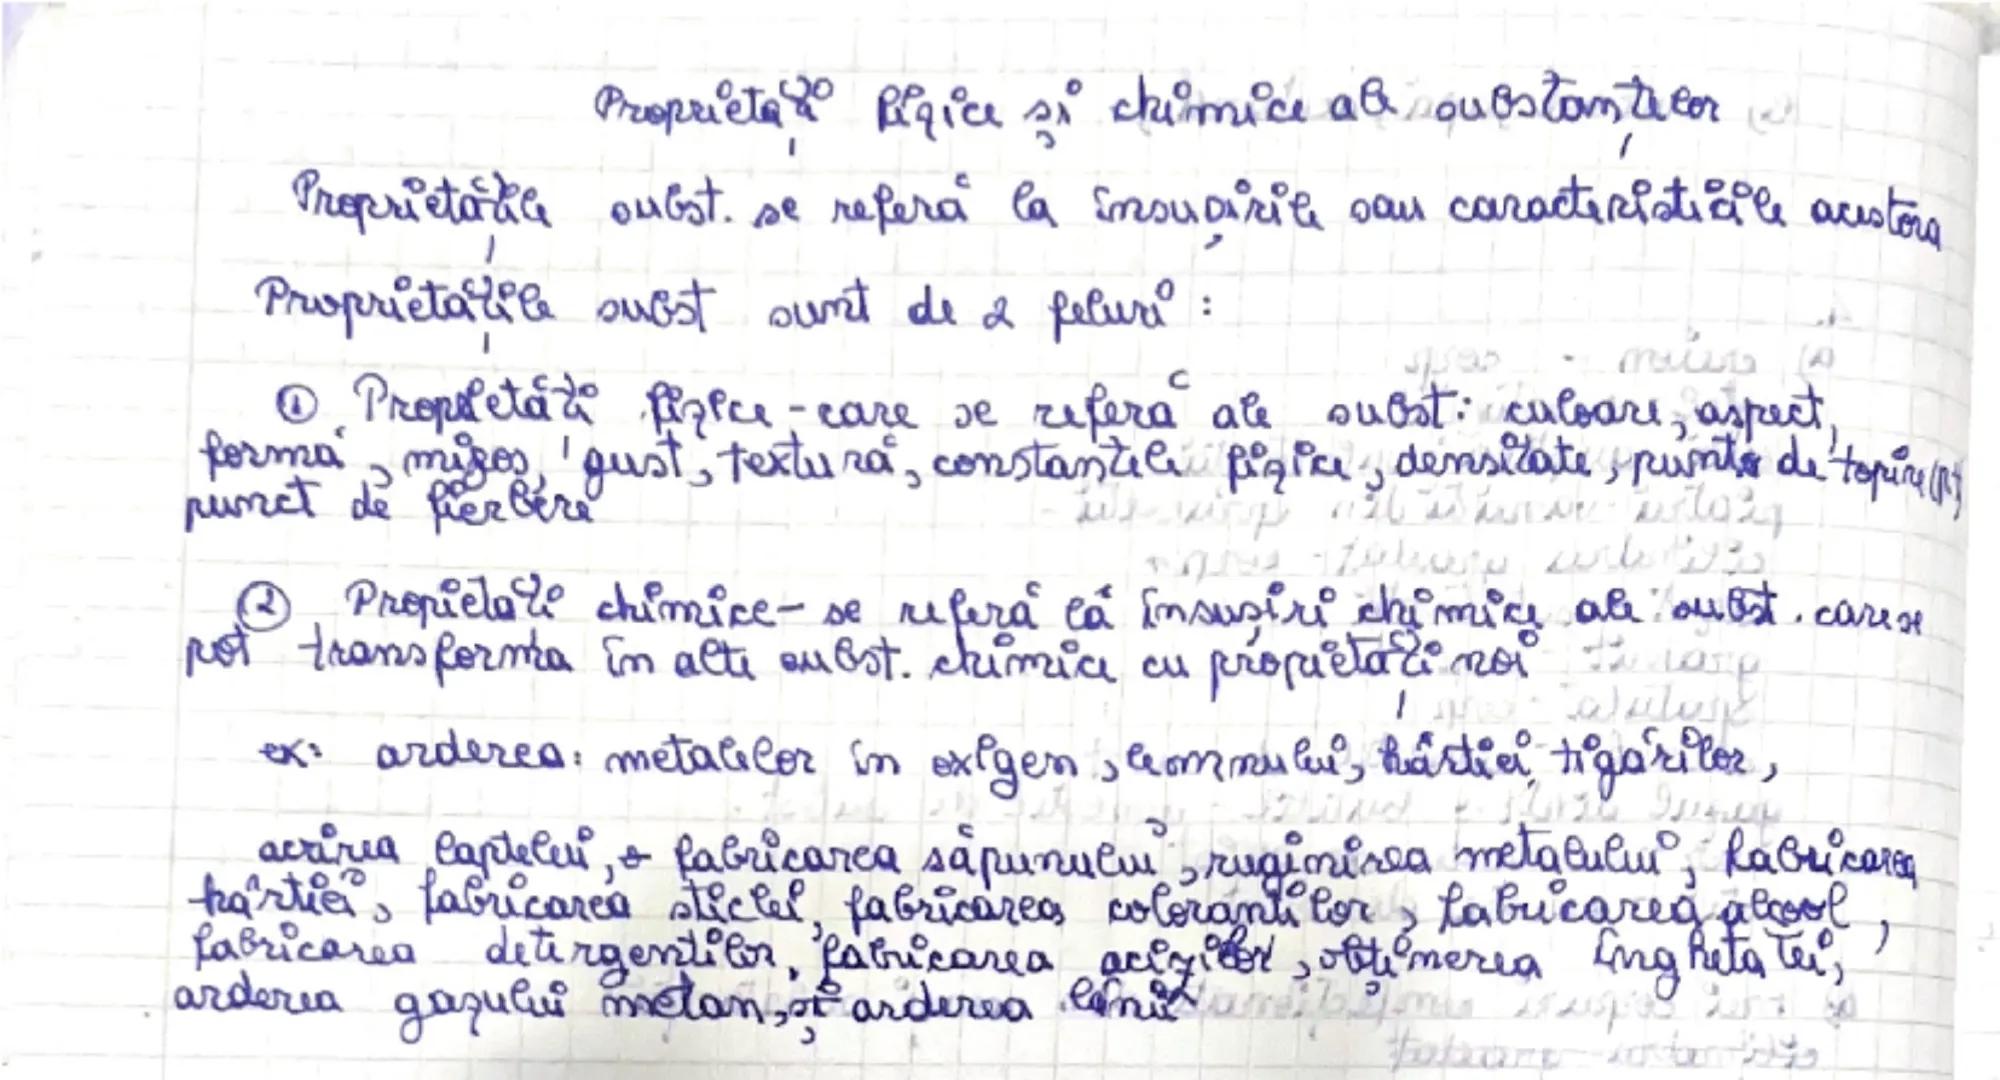 Proprietăți fizice și chimice ale substanțelor
Proprietățile subst. se referă la însușirile sau caracteristicile acestora
Proprietățile subst sunt de 2 feluri:
① Propietăți fizice - care se referă ale subst: culoare, aspect,
formă, miros, gust, textură, constantele fizice, densitate, punct de topire (p.t)
punct de fierbere
② Propietăți chimice - se referă la însușiri chimice ale subst. care se
pot transforma în alte subst. chimice cu proprietăți noi
ex: arderea: metalelor în oxigen, lemnului, hârtiei, țigărilor,
acrirea laptelui, fabricarea săpunului, ruginirea metalului, fabricarea
hârtiei, fabricarea sticlei, fabricarea coloranților, fabricarea alcool,
fabricarea detergenților, fabricarea acizilor, obținerea înghețatei,
arderea gazului metan, și arderea lânii